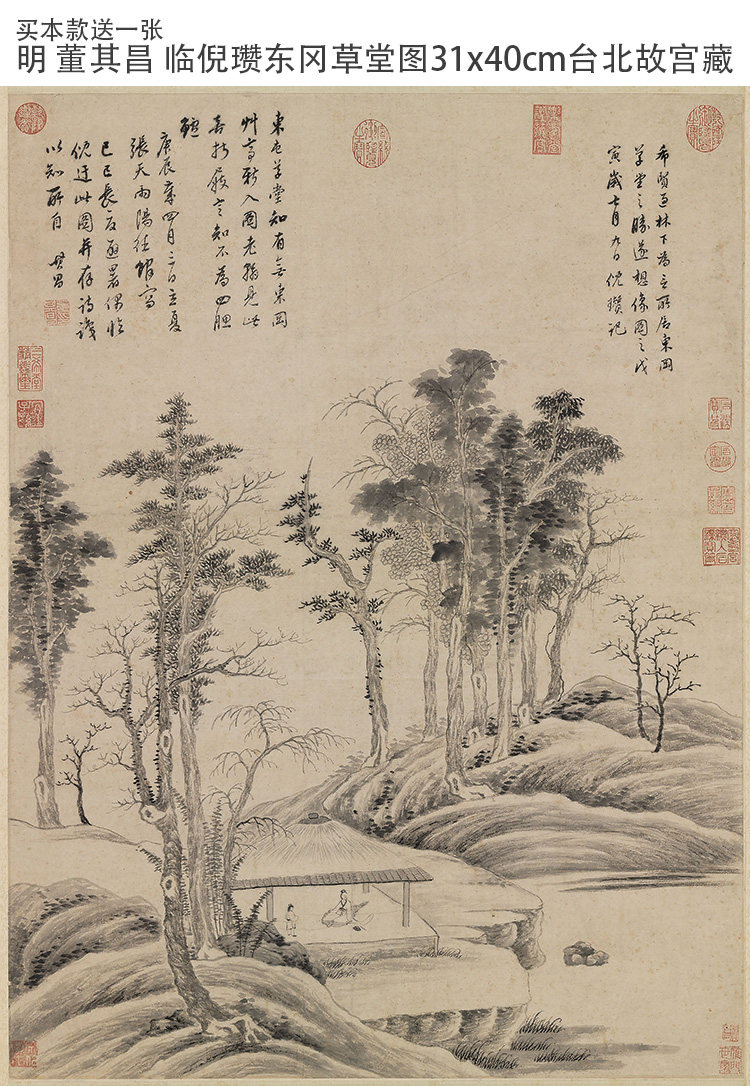 买本款送一张
明 董其昌 临倪瓒东冈草堂图31x40cm台北故宫藏
希賢過林下為言所居東岡
草堂之勝遂想像圖之戊
寅歲七月九日倪瓚記
東屯草堂知有無東岡
艸亭新入圖老翁見此
喜折屐言知不為四腮
鱸
庚辰歲四月三日立夏
張天雨陽德館寫
己巳長夏避暑偶臨
倪迂此圖并存詩識
以知所自 其昌